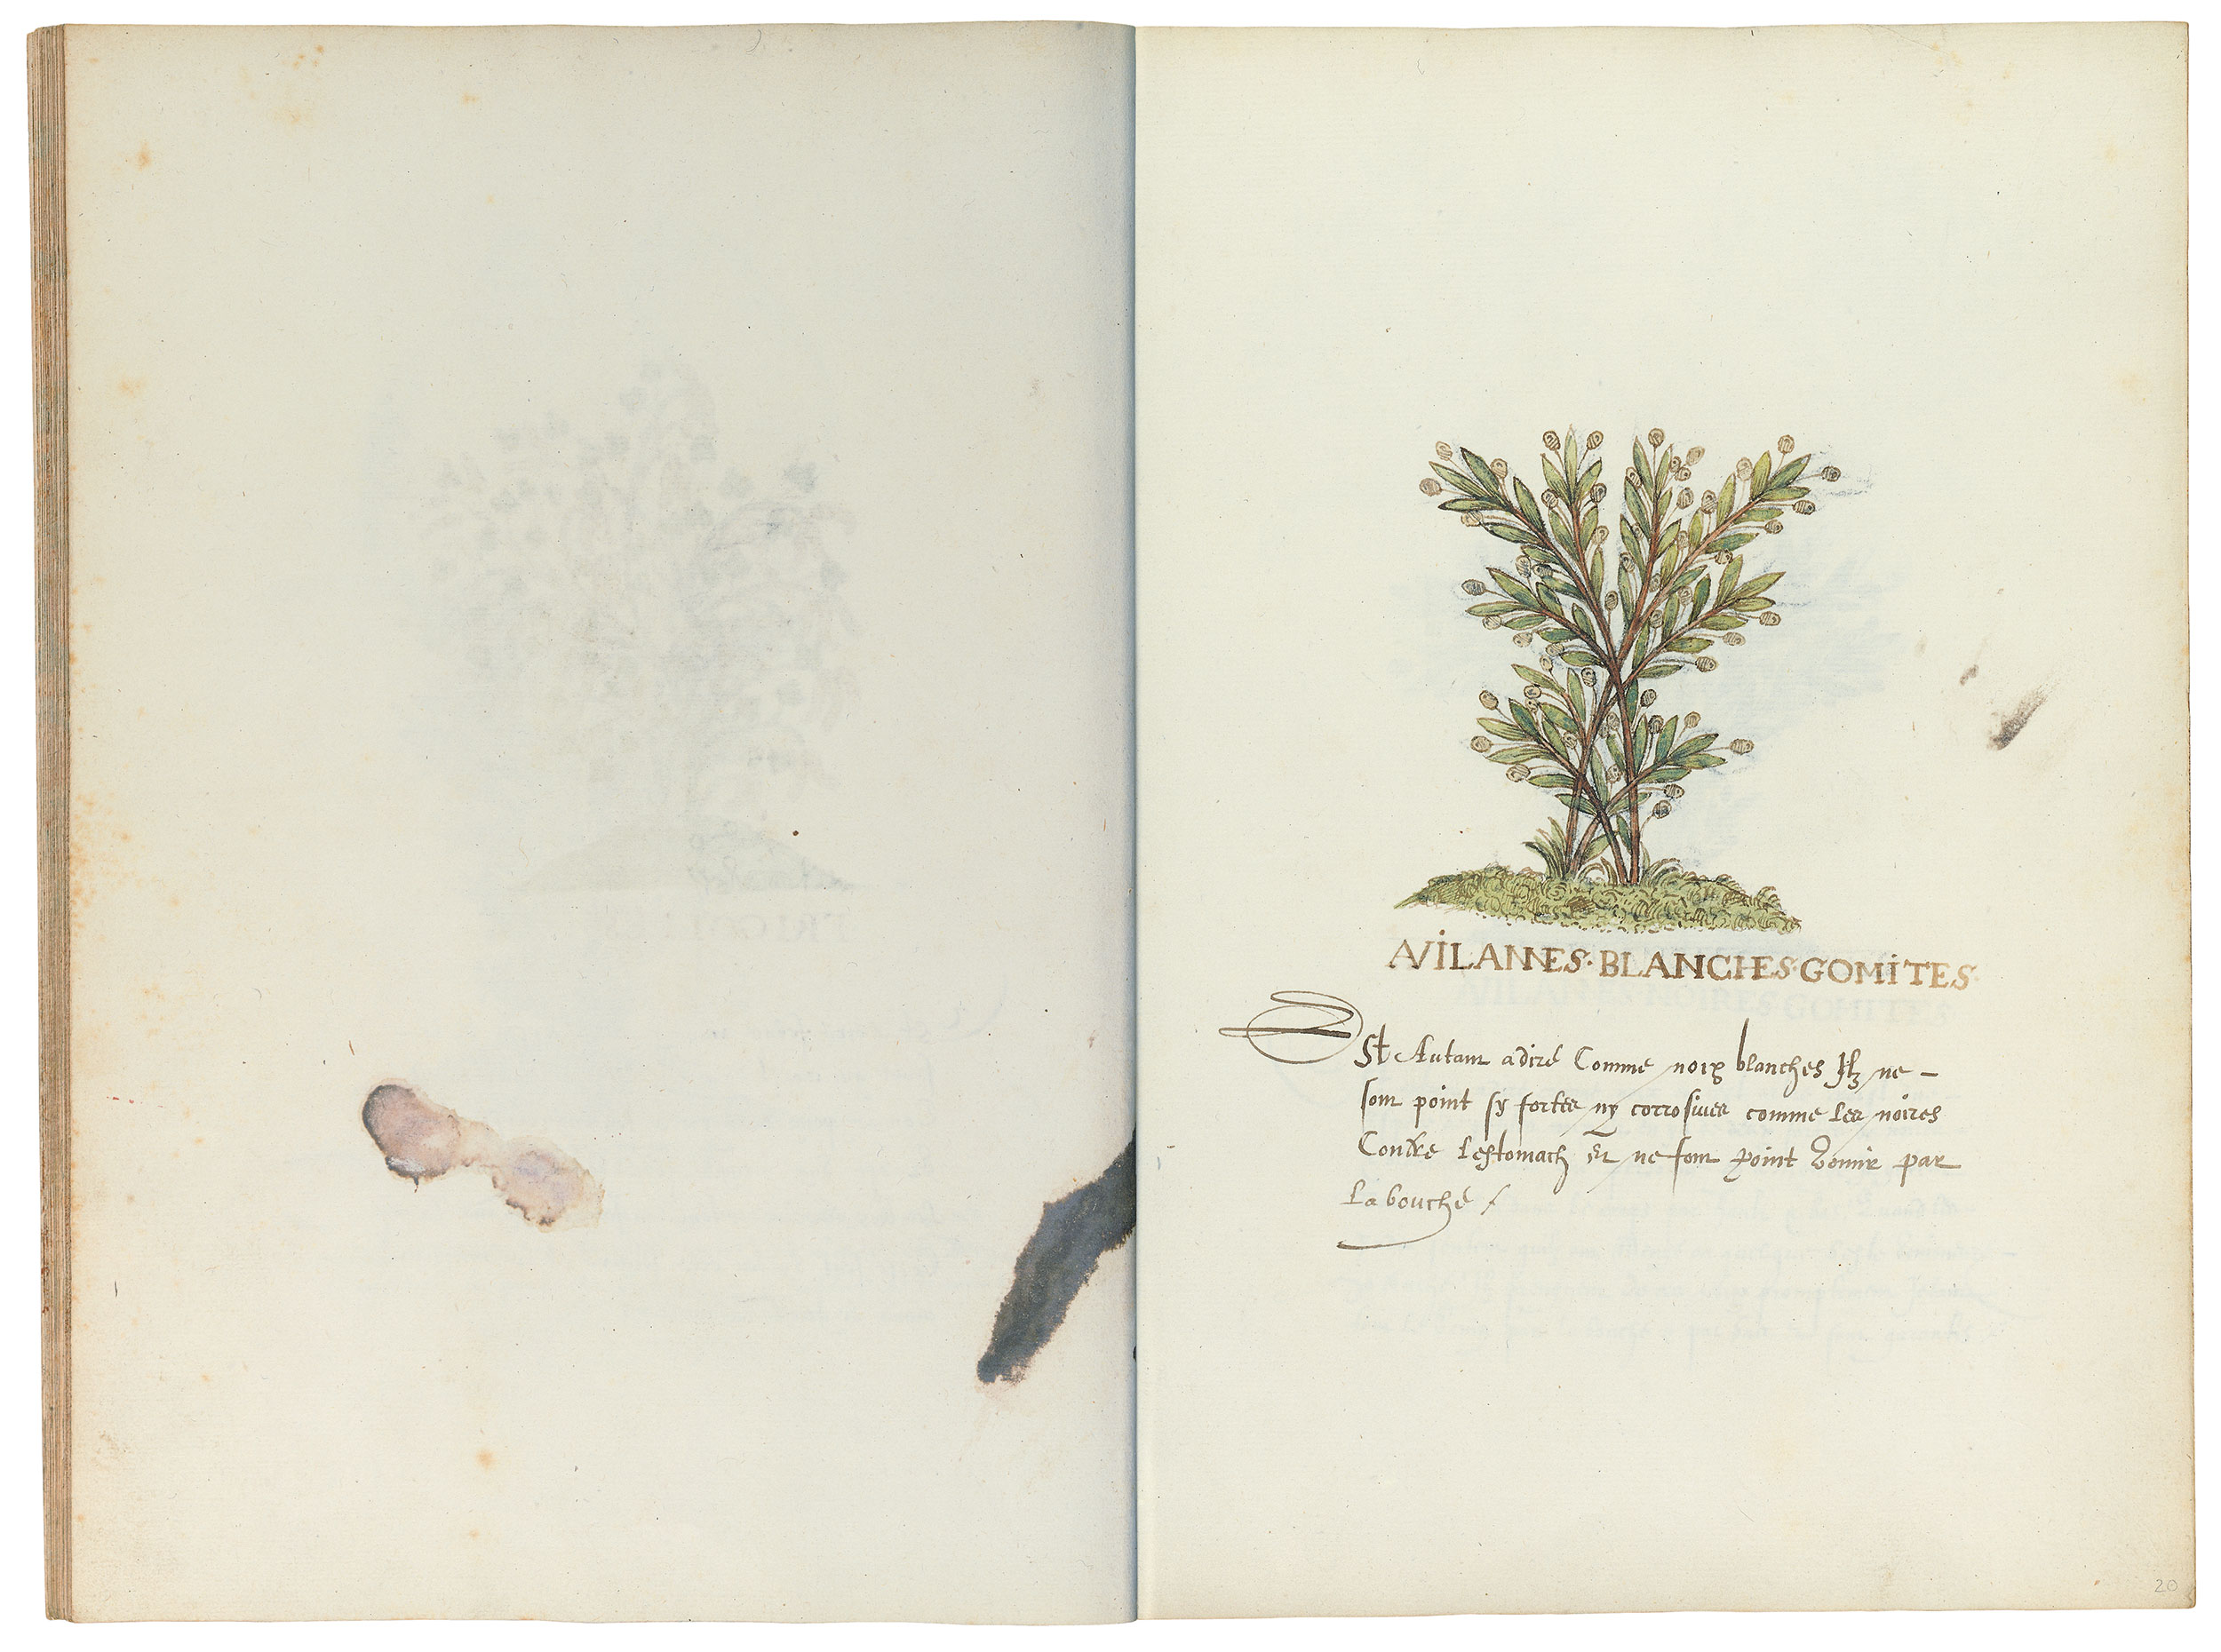 AVILANNES · BLANCHES · GOMITES
Est Autant adire Comme noix blanches Ilz ne -
sont point sy fortes ny corrosiues comme les noires
Contre lestomach Et ne font point Vomir par
La bouche /
20